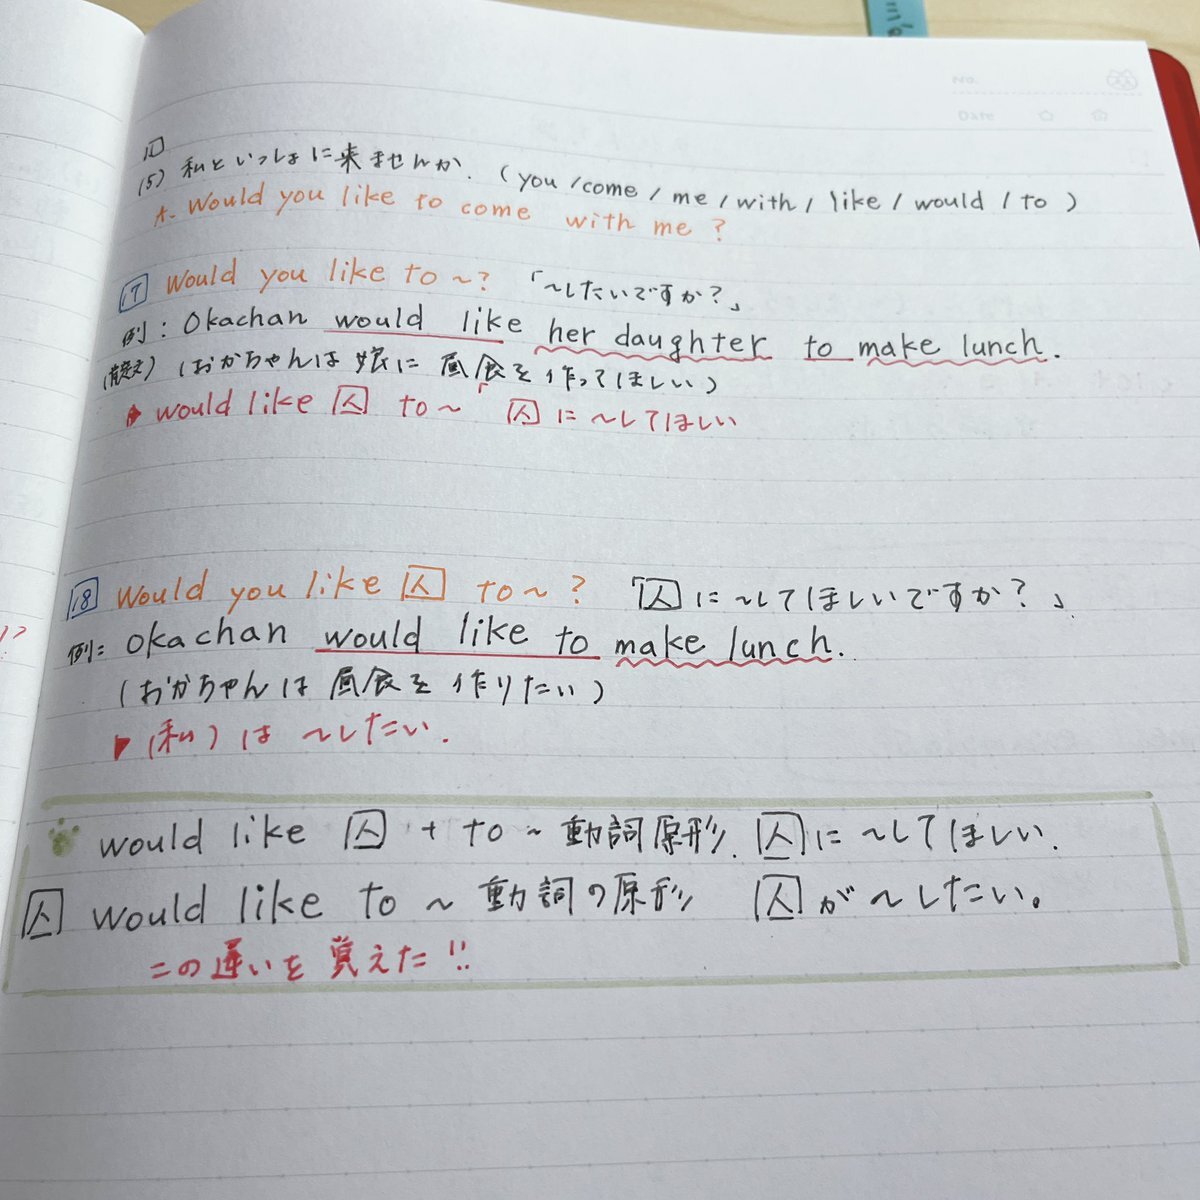 No.
Date
(5) 私といっしょに来ませんか. (you / come / me / with / like / would / to)
A. Would you like to come with me?
17 Would you like to ~? 「~したいですか?」
例: Okachan would like her daughter to make lunch.
(おかちゃんは娘に昼食を作ってほしい)
▶ would like 人 to ~ 「人に~してほしい
18 Would you like 人 to ~? 「人に~してほしいですか?」
例: Okachan would like to make lunch.
(おかちゃんは昼食を作りたい)
▶ (私)は ~したい.
would like 人 + to ~ 動詞原形. 人に~してほしい.
人 would like to ~ 動詞の原形 人が~したい。
この違いを覚えた!!